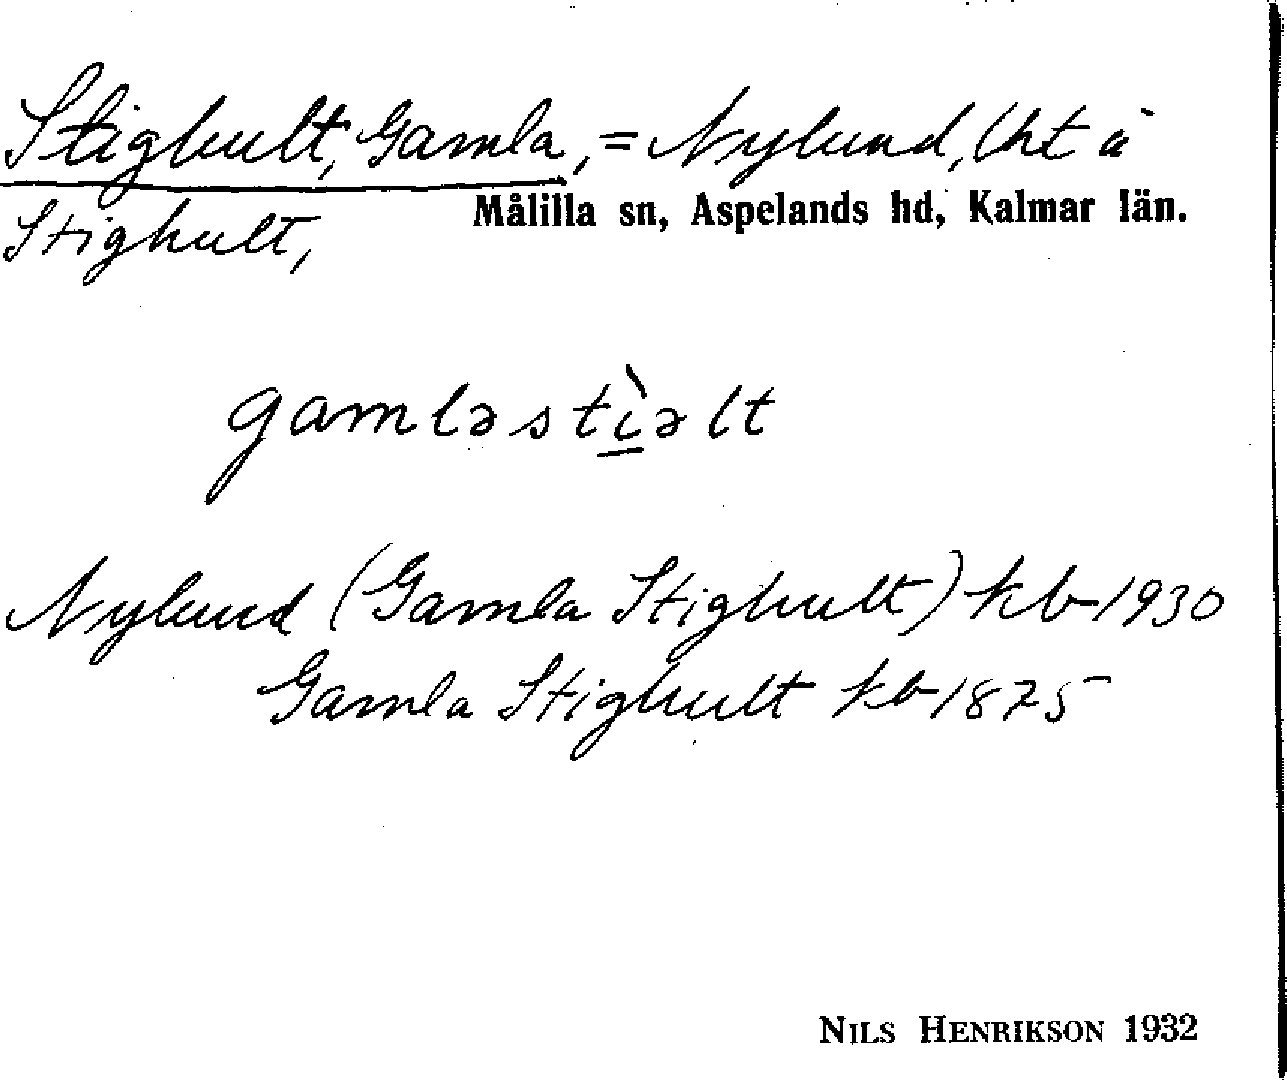 Stighult, Gamla, = Nylund, lht å
Målilla sn, Aspelands hd, Kalmar län.
Stighult,
gamləstìəlt
Nylund (Gamla Stighult) kb 1930
Gamla Stighult kb 1875
NILS HENRIKSON 1932